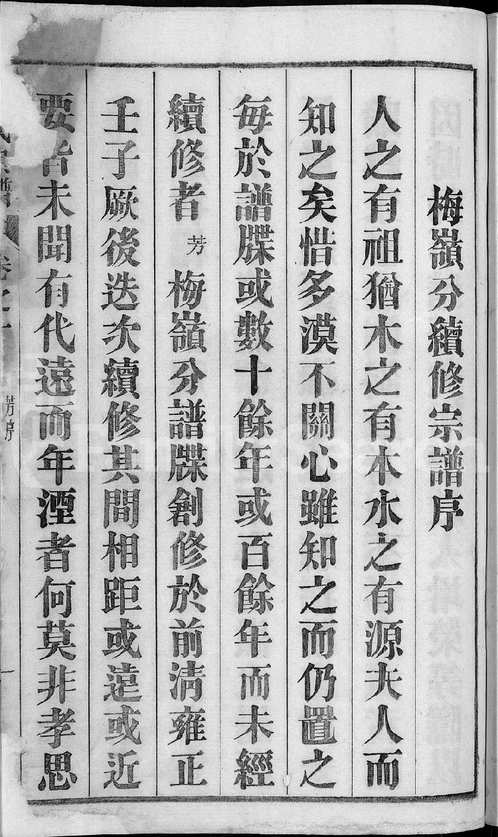 梅嶺分續修宗譜序
人之有祖猶木之有本水之有源夫人而
知之矣惜多漠不關心雖知之而仍置之
每於譜牒或數十餘年或百餘年而未經
續修者芳梅嶺分譜牒創修於前清雍正
壬子厥後迭次續修其間相距或遠或近
要皆未聞有代遠而年湮者何莫非孝思
譜 卷之一 芳序